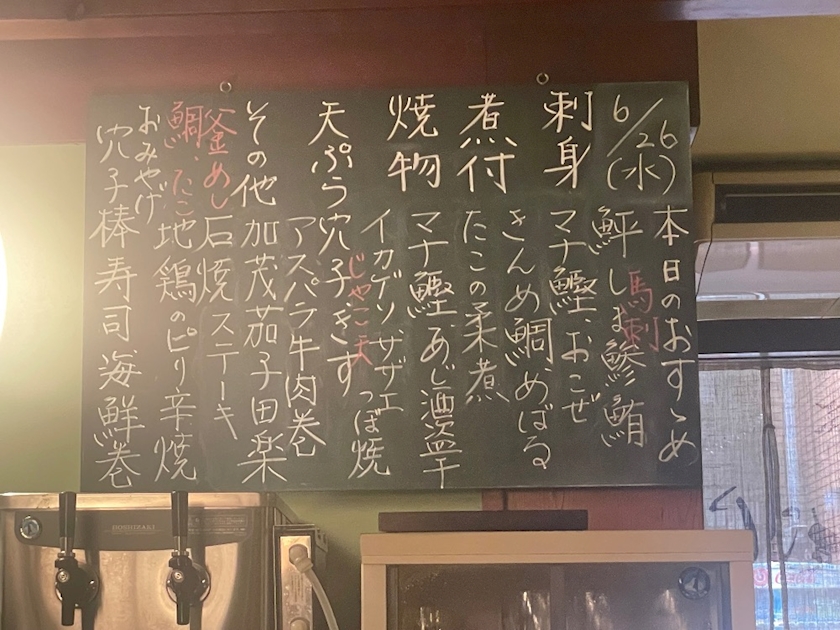 6/26(水)
本日のおすゝめ
刺身
鮃 しま鯵 鮪
馬刺
マナ鰹、おこぜ
煮付
きんめ鯛、めばる
たこの柔煮
焼物
マナ鰹、あじ酒盗干
イカゲソ、サザエつぼ焼
じゃこ天
天ぷら
穴子、きす
アスパラ牛肉巻
その他
加茂茄子田楽
石焼ステーキ
地鶏のピリ辛焼
釜めし
鯛、たこ
おみやげ
穴子棒寿司 海鮮巻
HOSHIZAKI